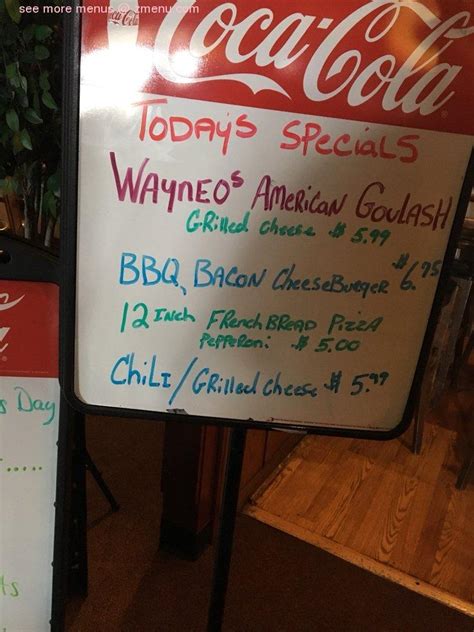 see more menus @ zmenu.com
Coca-Cola
Coca-Cola
TODAY'S SPECIALS
WAYNEO'S AMERICAN GOULASH
GRilled Cheese $ 5.99
BBQ, BACON CheeseBurger $ 6.75
12 INCH FRENCH BREAD PIZZA
PEPPERONI $ 5.00
CHILI / GRilled Cheese $ 5.99
s Day
.....
ts